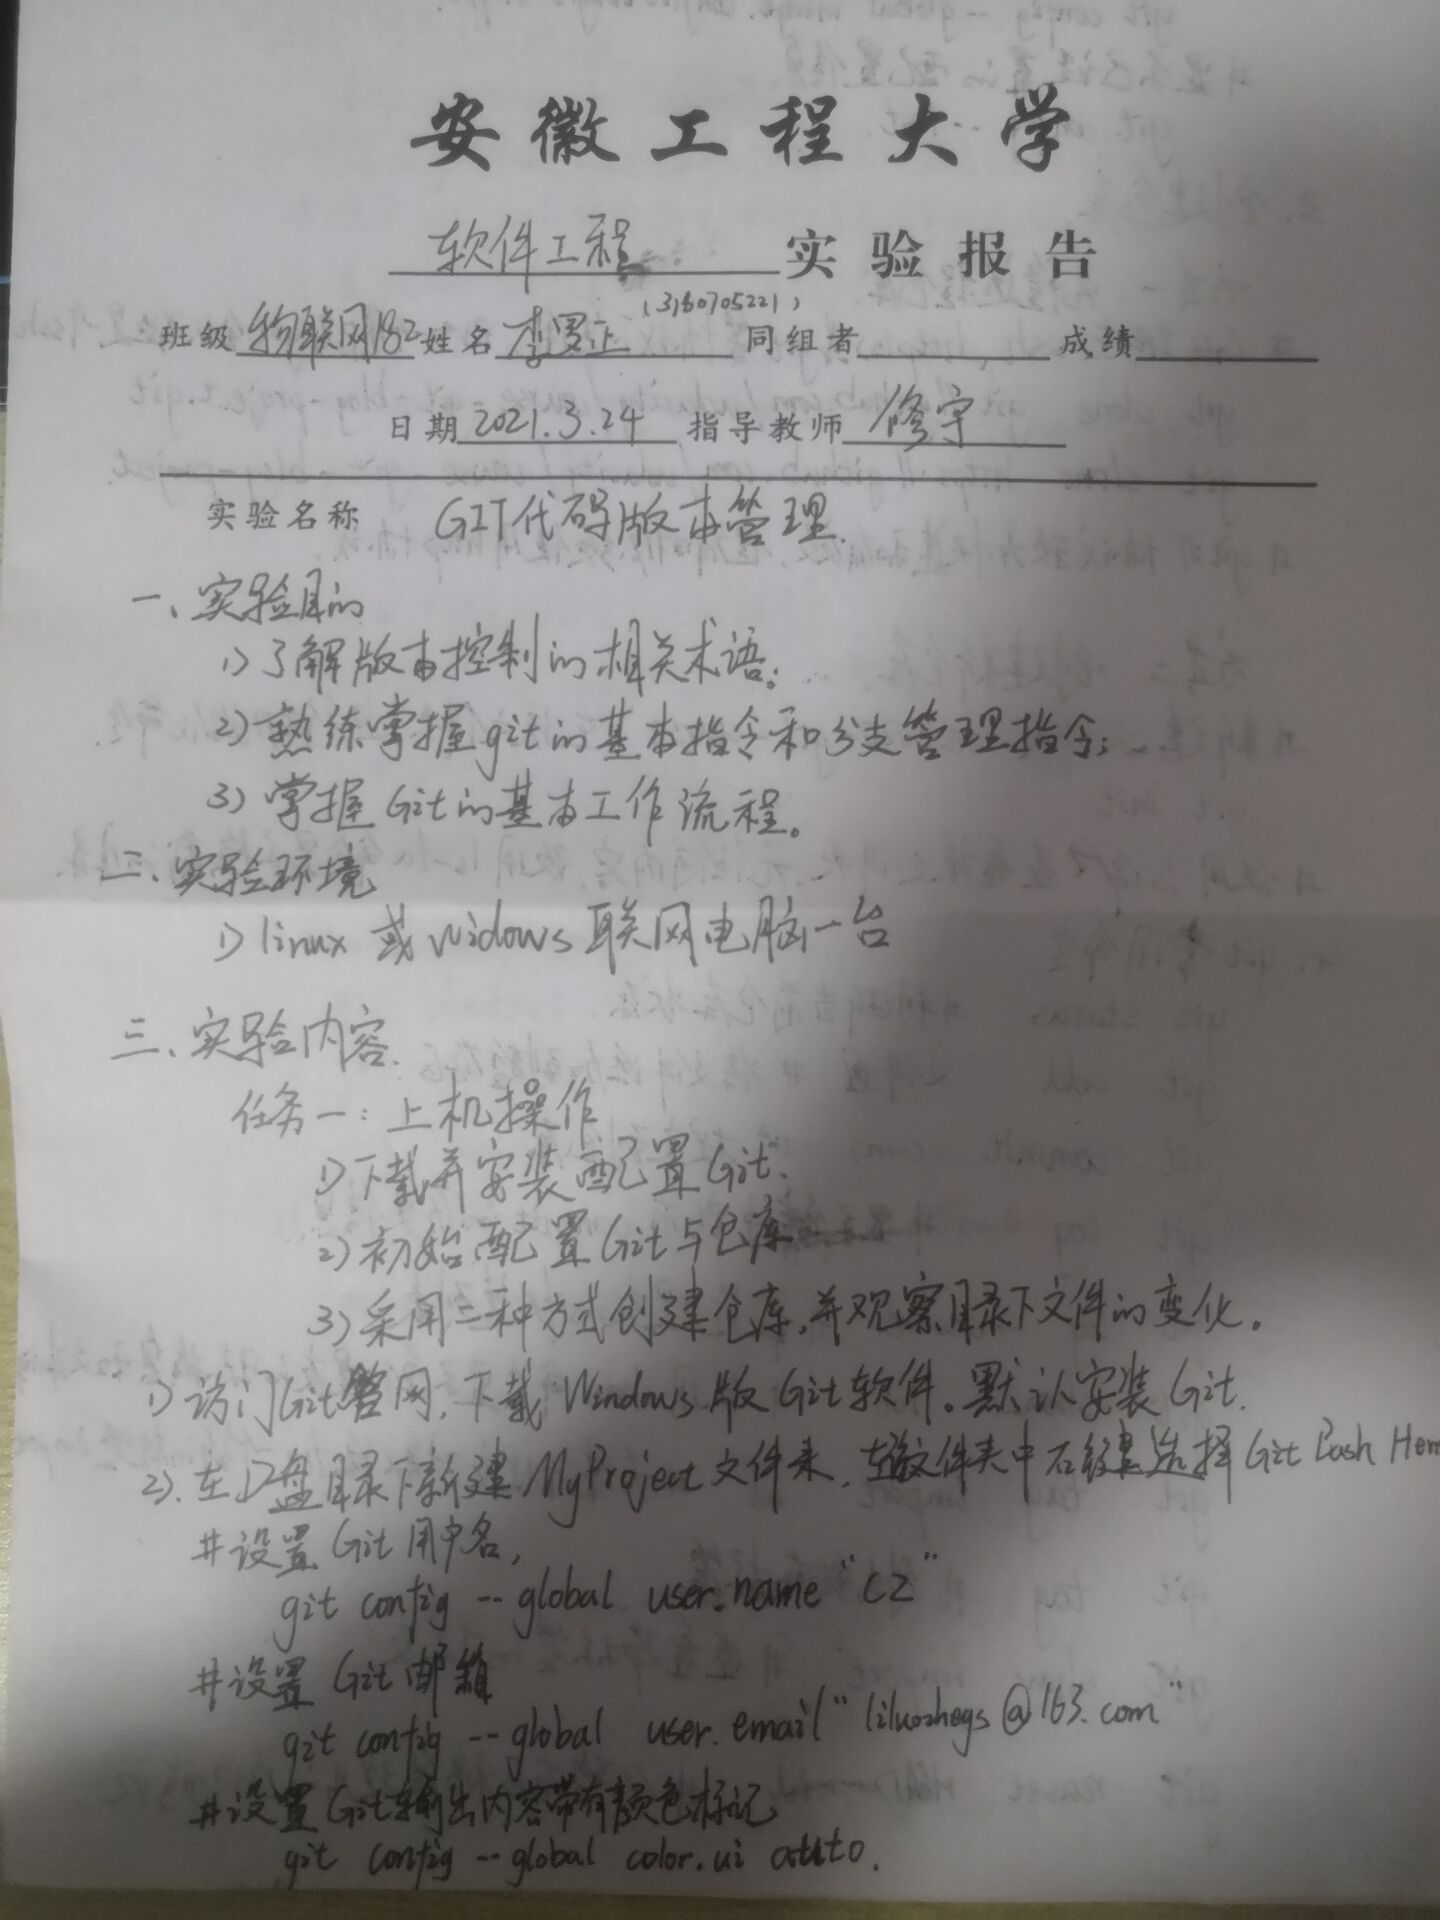 安徽工程大学
软件工程 实验报告
(3180705221)
班级 物联网182 姓名 李罗正 同组者 成绩
日期 2021.3.24 指导教师 修宇
实验名称 GIT代码版本管理.
一、实验目的
1)了解版本控制的相关术语;
2)熟练掌握git的基本指令和分支管理指令;
3)掌握Git的基本工作流程。
二、实验环境
1) linux 或 widows 联网电脑一台
三、实验内容.
任务一:上机操作
1)下载并安装配置Git.
2)初始配置Git与仓库
3)采用二种方式创建仓库,并观察目录下文件的变化。
1)访问Git官网,下载Windows版Git软件。默认安装Git.
2).在D盘目录下新建MyProject文件夹,在该文件夹中右键选择Git Bash Here
#设置Git用户名,
git config --global user.name "CZ"
#设置Git邮箱
git config --global user.email "liluozhegs@163.com"
#设置Git输出内容带有颜色标记
git config --global color.ui auto.